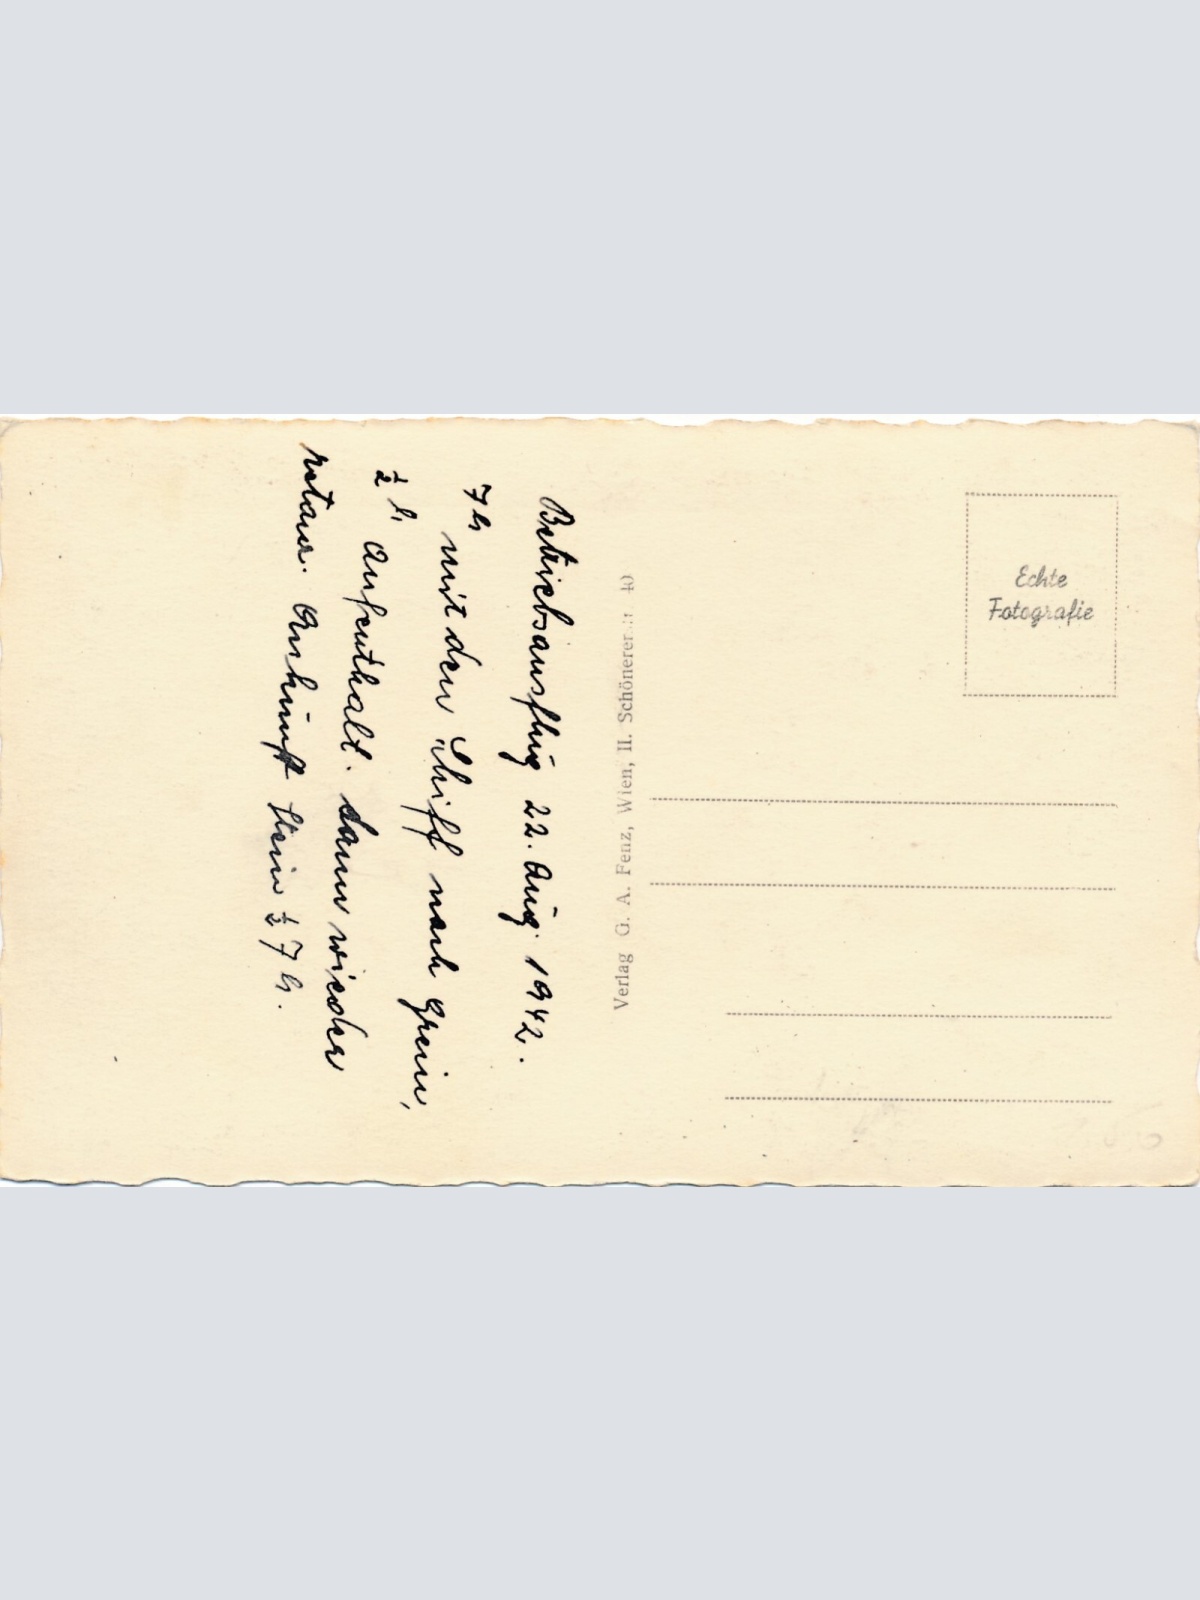 Betriebsausflug 22. Aug. 1942.
7 h mit dem Schiff nach Grein,
½ h Aufenthalt. dann wieder
retour. Ankunft Stein ½ 7 h.
Verlag G. A. Fenz, Wien, II. Schönererstr.
Echte
Fotografie